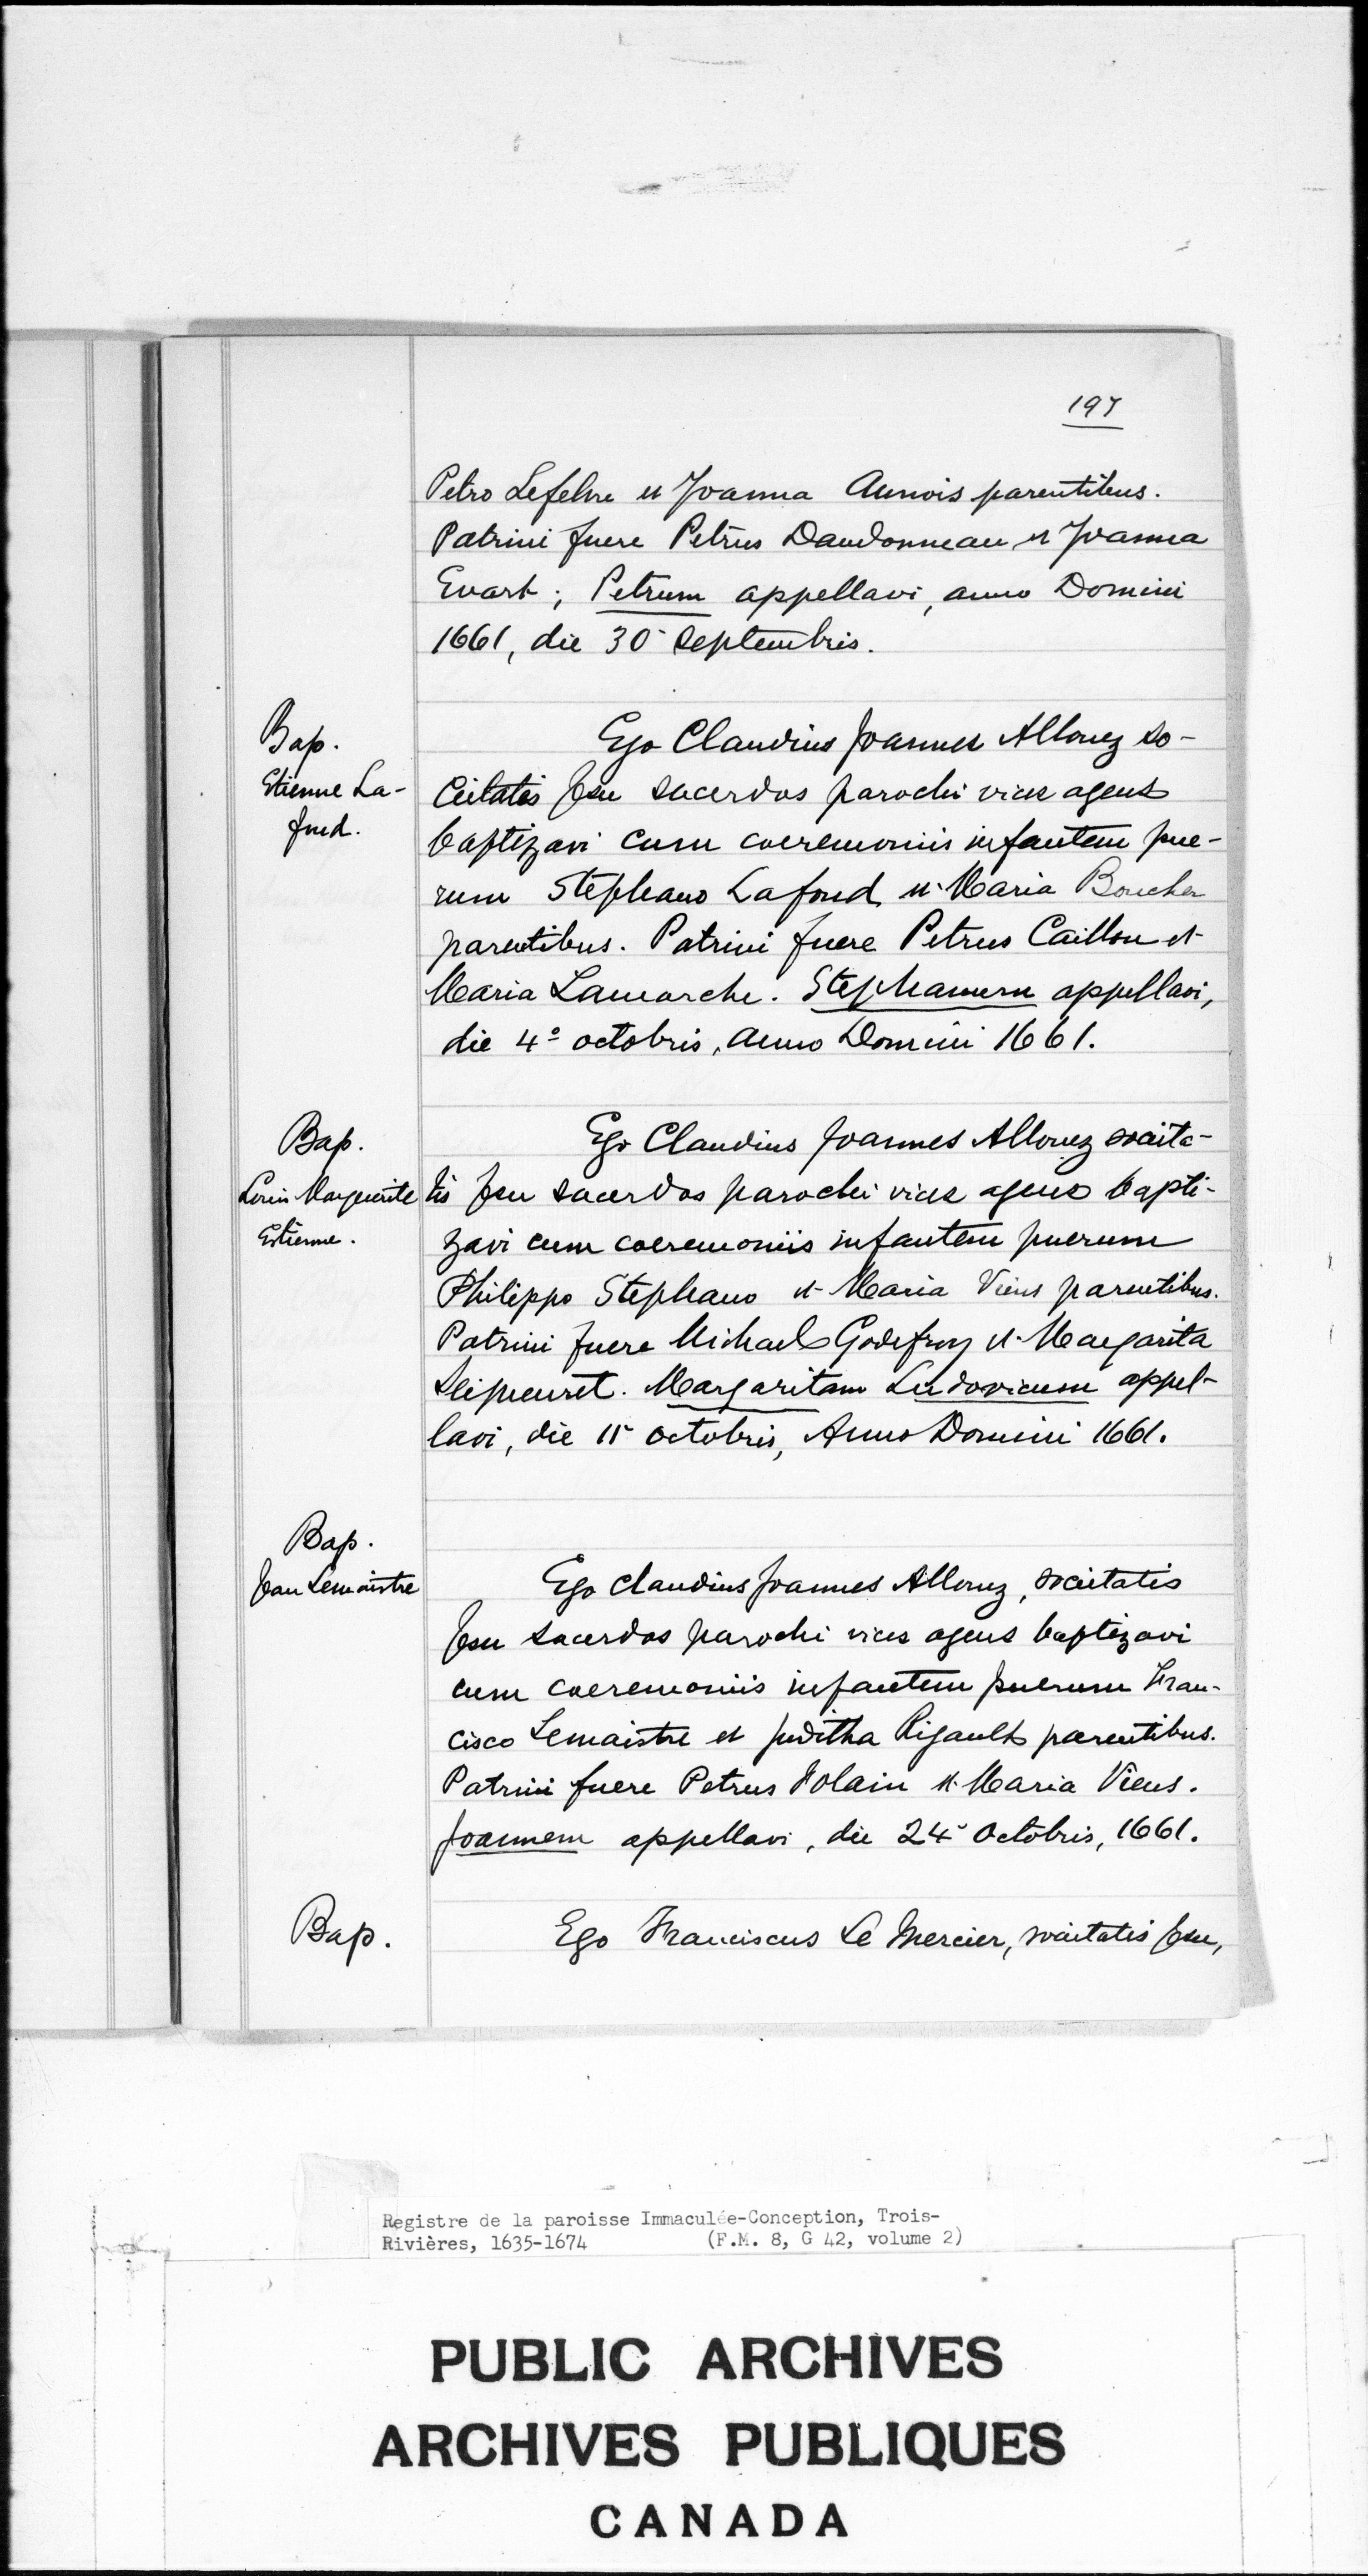 197
Petro Lefebvre et Joanna Aunois parentibus.
Patrini fuere Petrus Dandonneau et Joanna
Evart; Petrum appellavi, anno Domini
1661, die 30ª Septembris.
Bap.
Etienne La-
fond.
Ego Claudius Joannes Allouez so-
cietatis Jesu sacerdos parochi vices agens
baptizavi cum coeremoniis infantem pue-
rum Stephano Lafond et Maria Boucher
parentibus. Patrini fuere Petrus Caillou et
Maria Lamarche. Stephanum appellavi,
die 4º octobris, anno Domini 1661.
Bap.
Louis Marguerite
Estienne.
Ego Claudius Joannes Allouez societa-
tis Jesu sacerdos parochi vices agens bapti-
zavi cum coeremoniis infantem puerum
Philippo Stephano et Maria Viens parentibus.
Patrini fuere Michael Godefroy et Margarita
Margaritam Ludovicum appel-
lavi, die 11ª octobris, Anno Domini 1661.
Bap.
Jean Lemaistre
Ego Claudius Joannes Allouez, societatis
Jesu sacerdos parochi vices agens baptizavi
cum coeremoniis infantem puerum Fran-
cisco Lemaistre et Juditha Rigault parentibus.
Patrini fuere Petrus et Maria Viens.
Joannem appellavi, die 24ª Octobris, 1661.
Bap.
Ego Franciscus Le Mercier, societatis Jesu,
Registre de la paroisse Immaculée-Conception, Trois-
Rivières, 1635-1674 (F.M. 8, G 42, volume 2)
PUBLIC ARCHIVES
ARCHIVES PUBLIQUES
CANADA